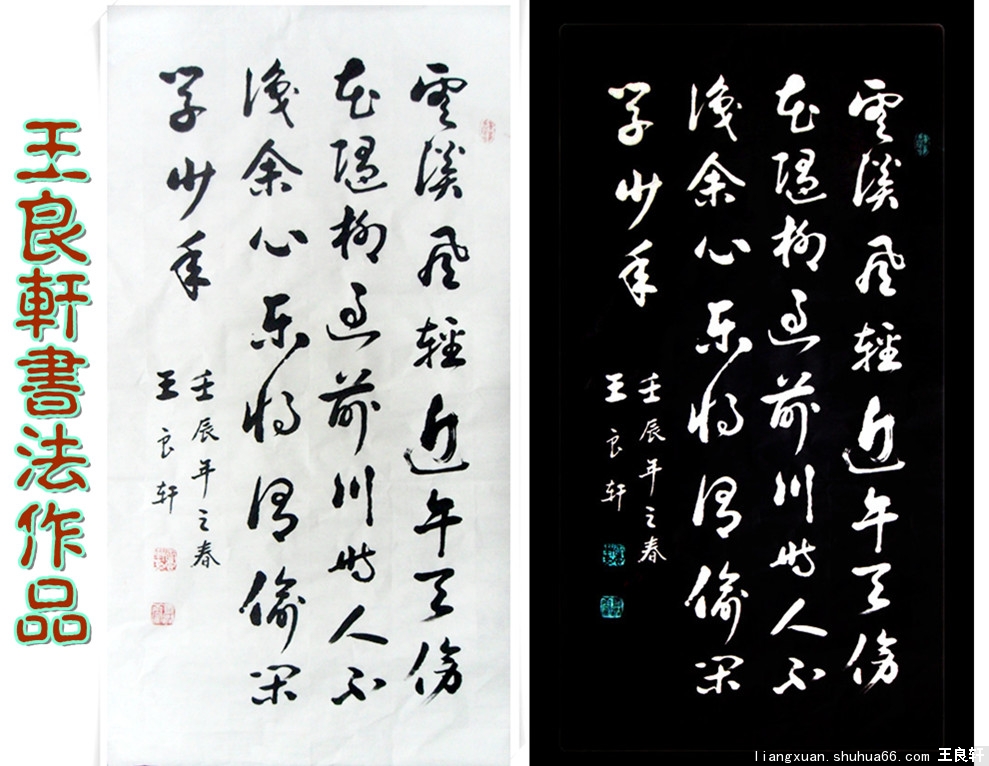 王良軒書法作品
雲淡風輕近午天傍
花隨柳過前川時人不
識余心樂將謂偷閑
學少年
壬辰年之春
王良轩
雲淡風輕近午天傍
花隨柳過前川時人不
識余心樂將謂偷閑
學少年
壬辰年之春
王良轩
liangxuan.shuhua66.com 王良轩